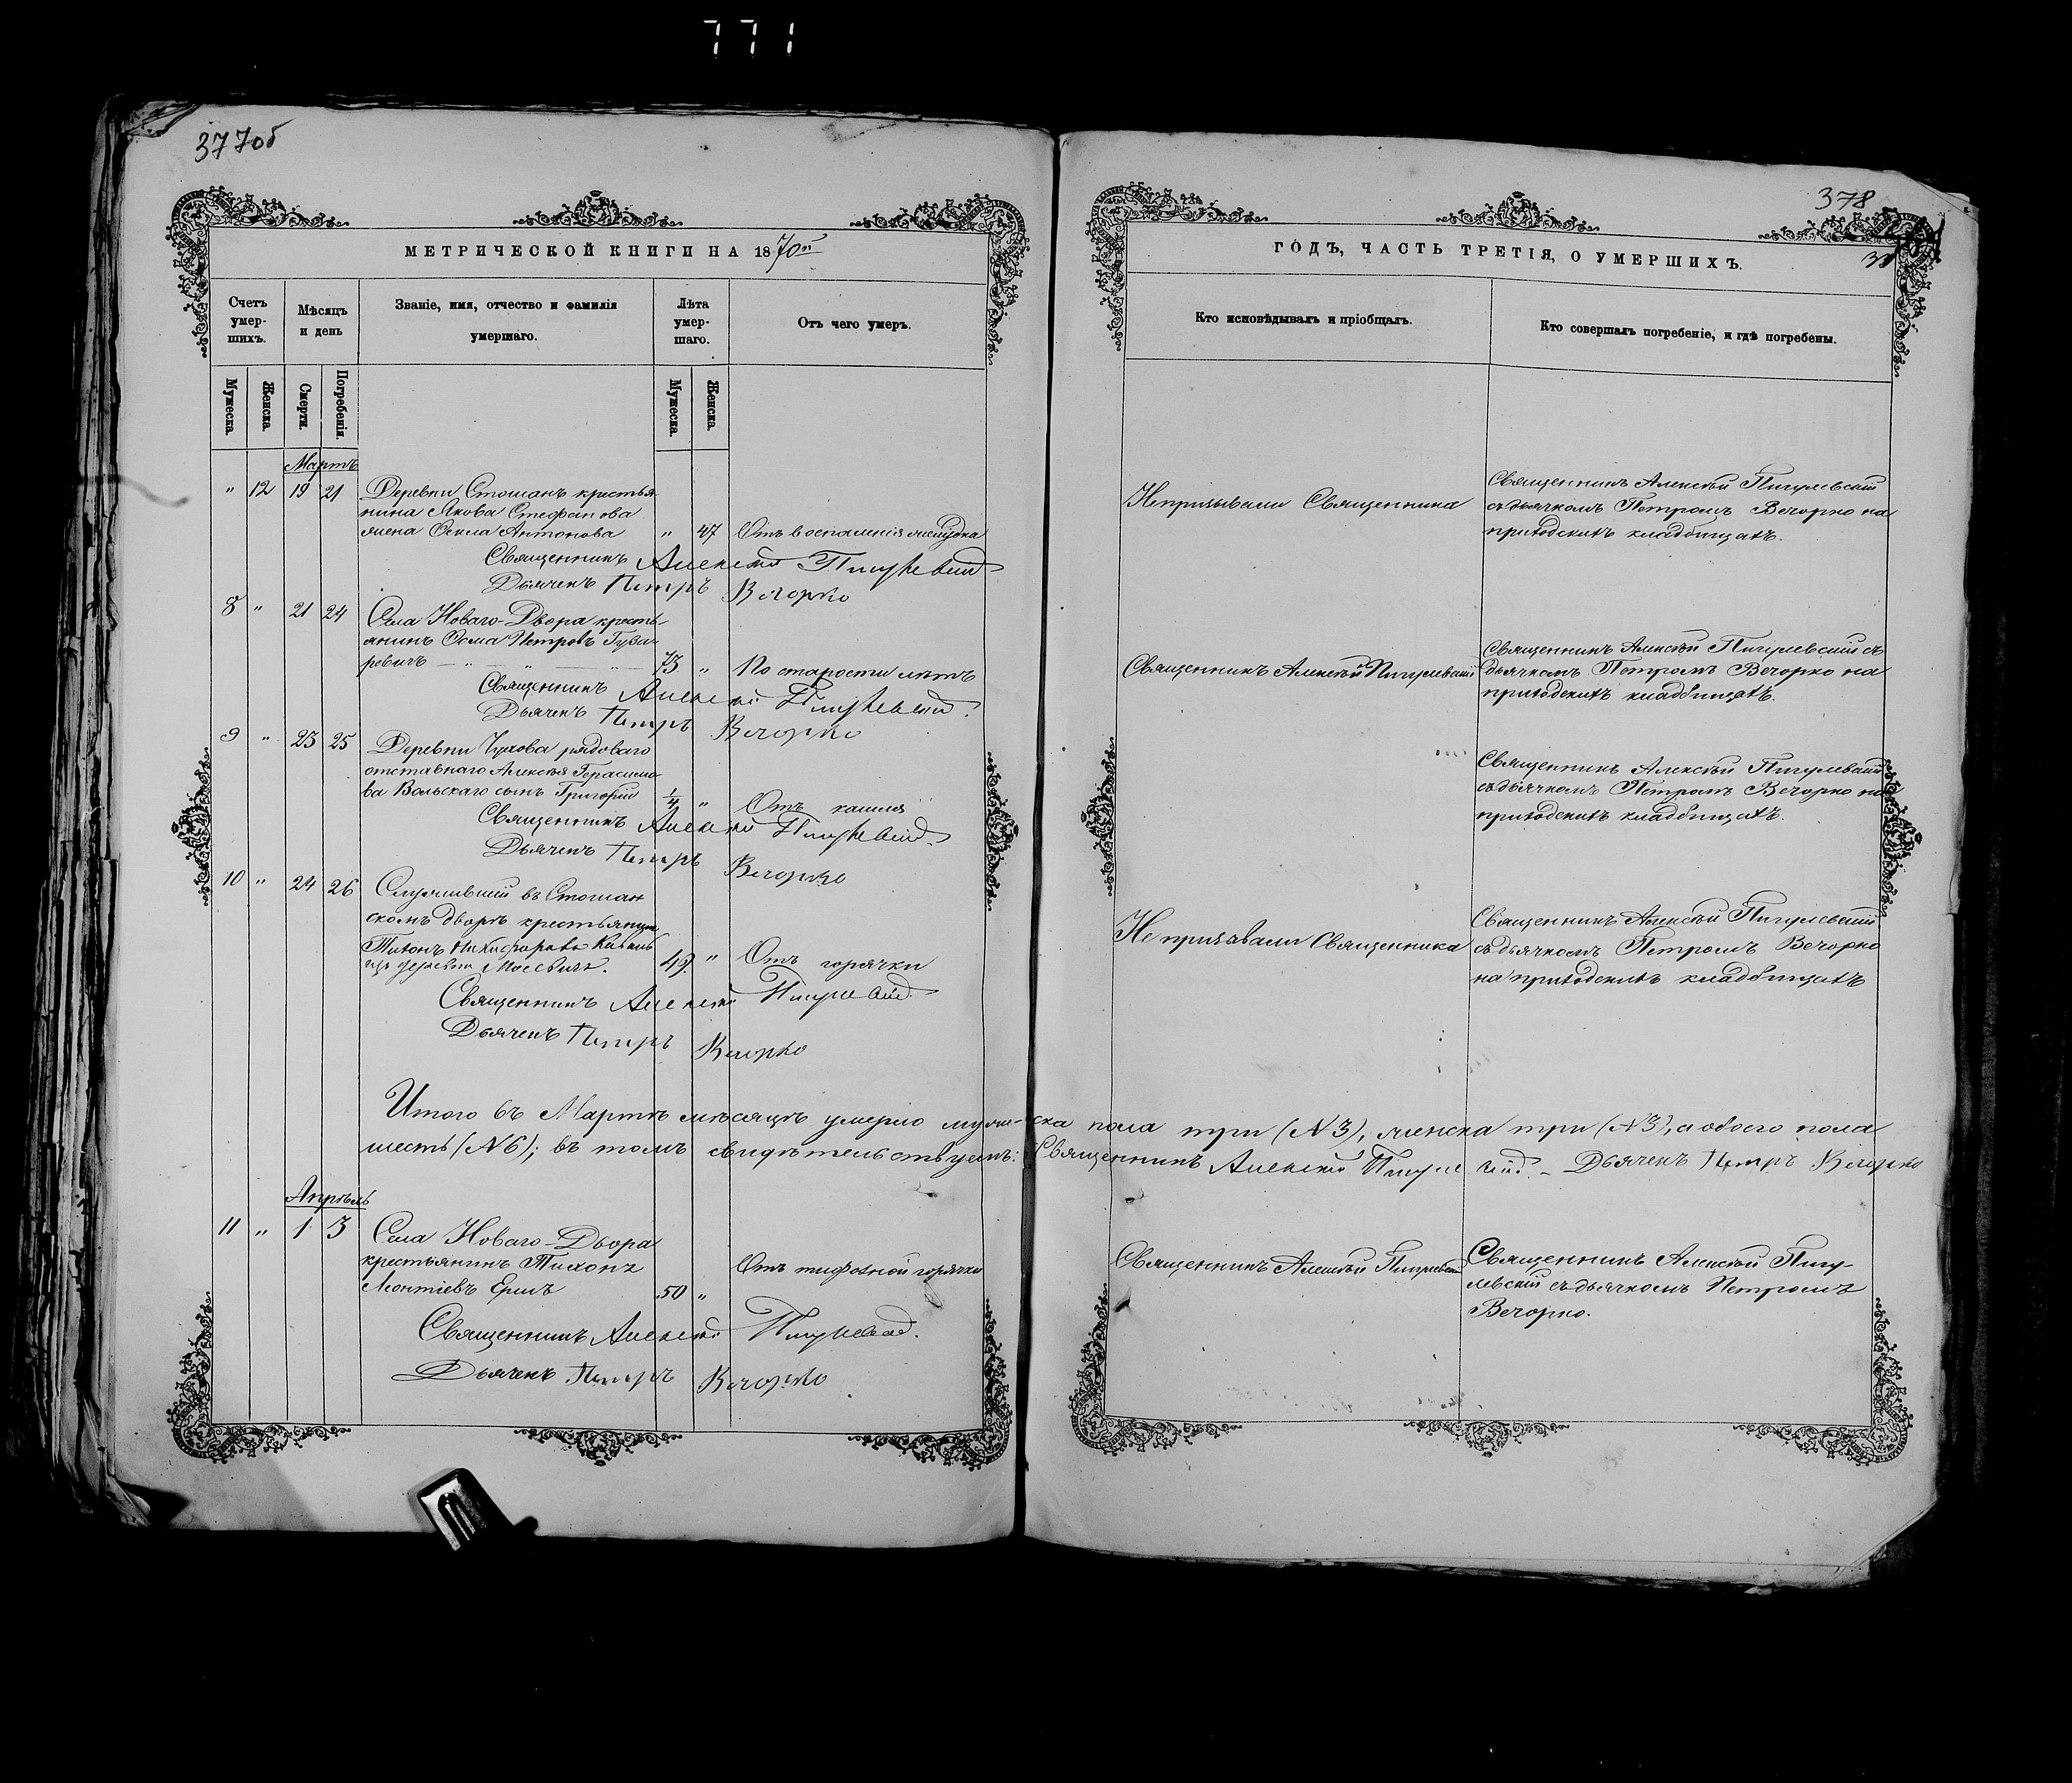 771
377об
МЕТРИЧЕСКОЙ КНИГИ НА 1870й
Счетъ умер-шихъ.
Мѣсяцъ и день
Званіе, имя, отчество и фамилія умершаго.
Лѣта умер-шаго.
Отъ чего умеръ.
Мужеска.
Женска.
Смерти.
Погребенія.
Мужеска.
Женска.
Мартъ
" 12 19 21 Деревни Стошанъ крестья-
нина Якова Стефанова
жена Антонова " 47 Отъ воспаленія желудка
Священникъ Алексѣй Пигулевскій
Дьячекъ Петръ Вечорко
8 " 21 24 Села Новаго-Двора кресть-
янинъ Петровъ
ревичъ 73 " По старости лѣтъ
Священникъ Алексѣй Пигулевскій.
Дьячекъ Петръ Вечорко
9 " 23 25 Деревни рядоваго
отставнаго Алексѣя Герасимо-
ва Вольскаго сынъ Григорій 1/4 " Отъ кашля
Священникъ Алексѣй Пигулевскій.
Дьячекъ Петръ Вечорко
10 " 24 26 Служившій въ Стошан
скомъ дворѣ крестьянинъ
Тихонъ Никифоровъ
изъ деревни 49 " Отъ горячки
Священникъ Алексѣй Пигулевскій.
Дьячекъ Петръ Вечорко
Итого въ Мартѣ мѣсяцѣ умерло муже-
шесть (N6); въ томъ свидѣтельствуемъ:
Апрѣль
11 " 1 3 Села Новаго-Двора
крестьянинъ Тихонъ Отъ тифозной горячки
Леонтіевъ Ершъ 50 "
Священникъ Алексѣй Пигулевскій.
Дьячекъ Петръ Вечорко
378
ГОДЪ, ЧАСТЬ ТРЕТІЯ, О УМЕРШИХЪ.
Кто исповѣдывалъ и пріобщалъ.
Кто совершалъ погребеніе, и гдѣ погребены.
Священникъ Алексѣй Пигулевскій
Непризывали Священника съ дьячкомъ Петромъ Вечорко на
приходскихъ кладбищахъ.
Священникъ Алексѣй Пигулевскій съ
Священникъ Алексѣй Пигулевскій дьячкомъ Петромъ Вечорко на
приходскихъ кладбищахъ.
Священникъ Алексѣй Пигулевскій
съ дьячкомъ Петромъ Вечорко на
приходскихъ кладбищахъ.
Священникъ Алексѣй Пигулевскій
Не призавали Священника съ дьячкомъ Петромъ Вечорко
на приходскихъ кладбищахъ
ска пола три (N3), женска три (N3), а обоего пола
Священникъ Алексѣй Пигулевскій. Дьячекъ Петръ Вечорко
Священникъ Алексѣй Пигулевскій Священникъ Алексѣй Пигу-
левскій съ дьячкомъ Петромъ
Вечорко.